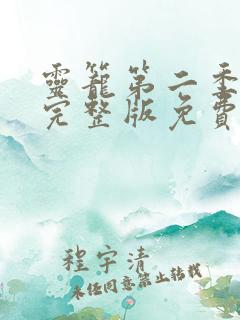 靈籠第二季
完整版免費
程宇清
未经同意禁止转载